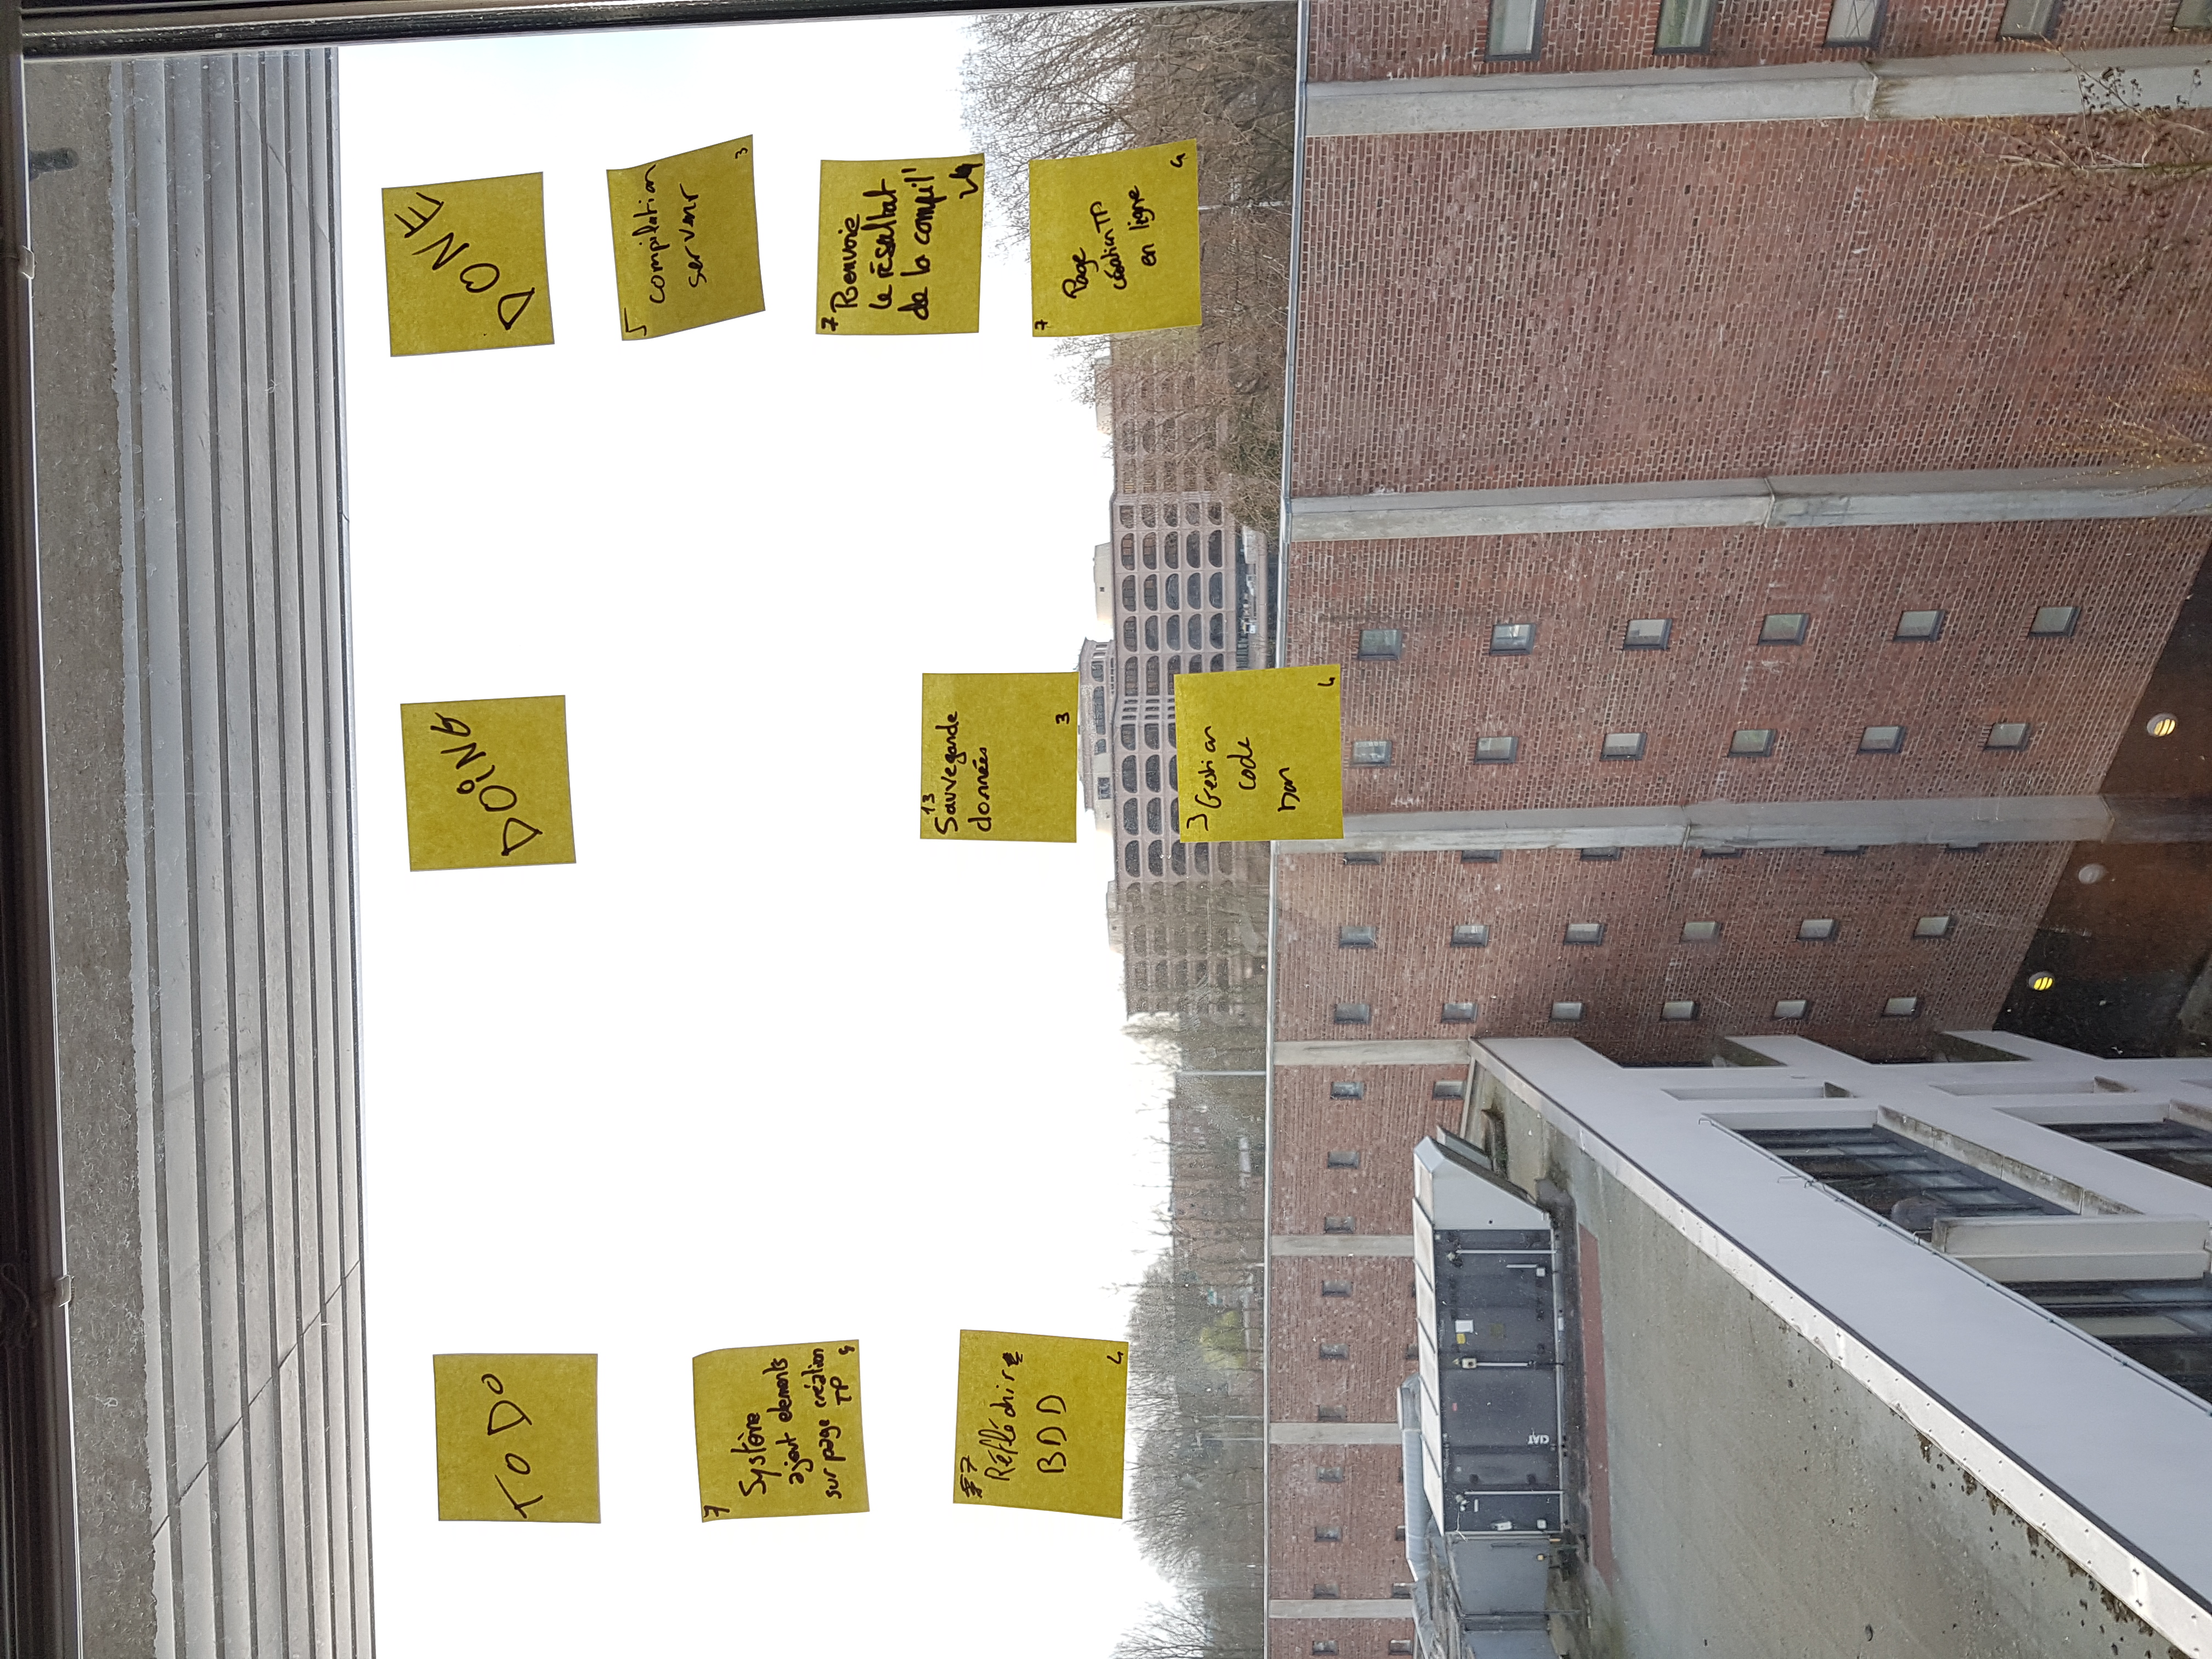 TO DO
DOiNG
DONE
7
Système
ajout elements
sur page création
TP
7
Réfléchire
BDD
4
13
Sauvegarde
données
3
3 Gestion
code
4
5
compilation
serveur
3
7 Renvoie
le résultat
de la compil'
4
7
Page
création TP
en ligne
4
CIAT